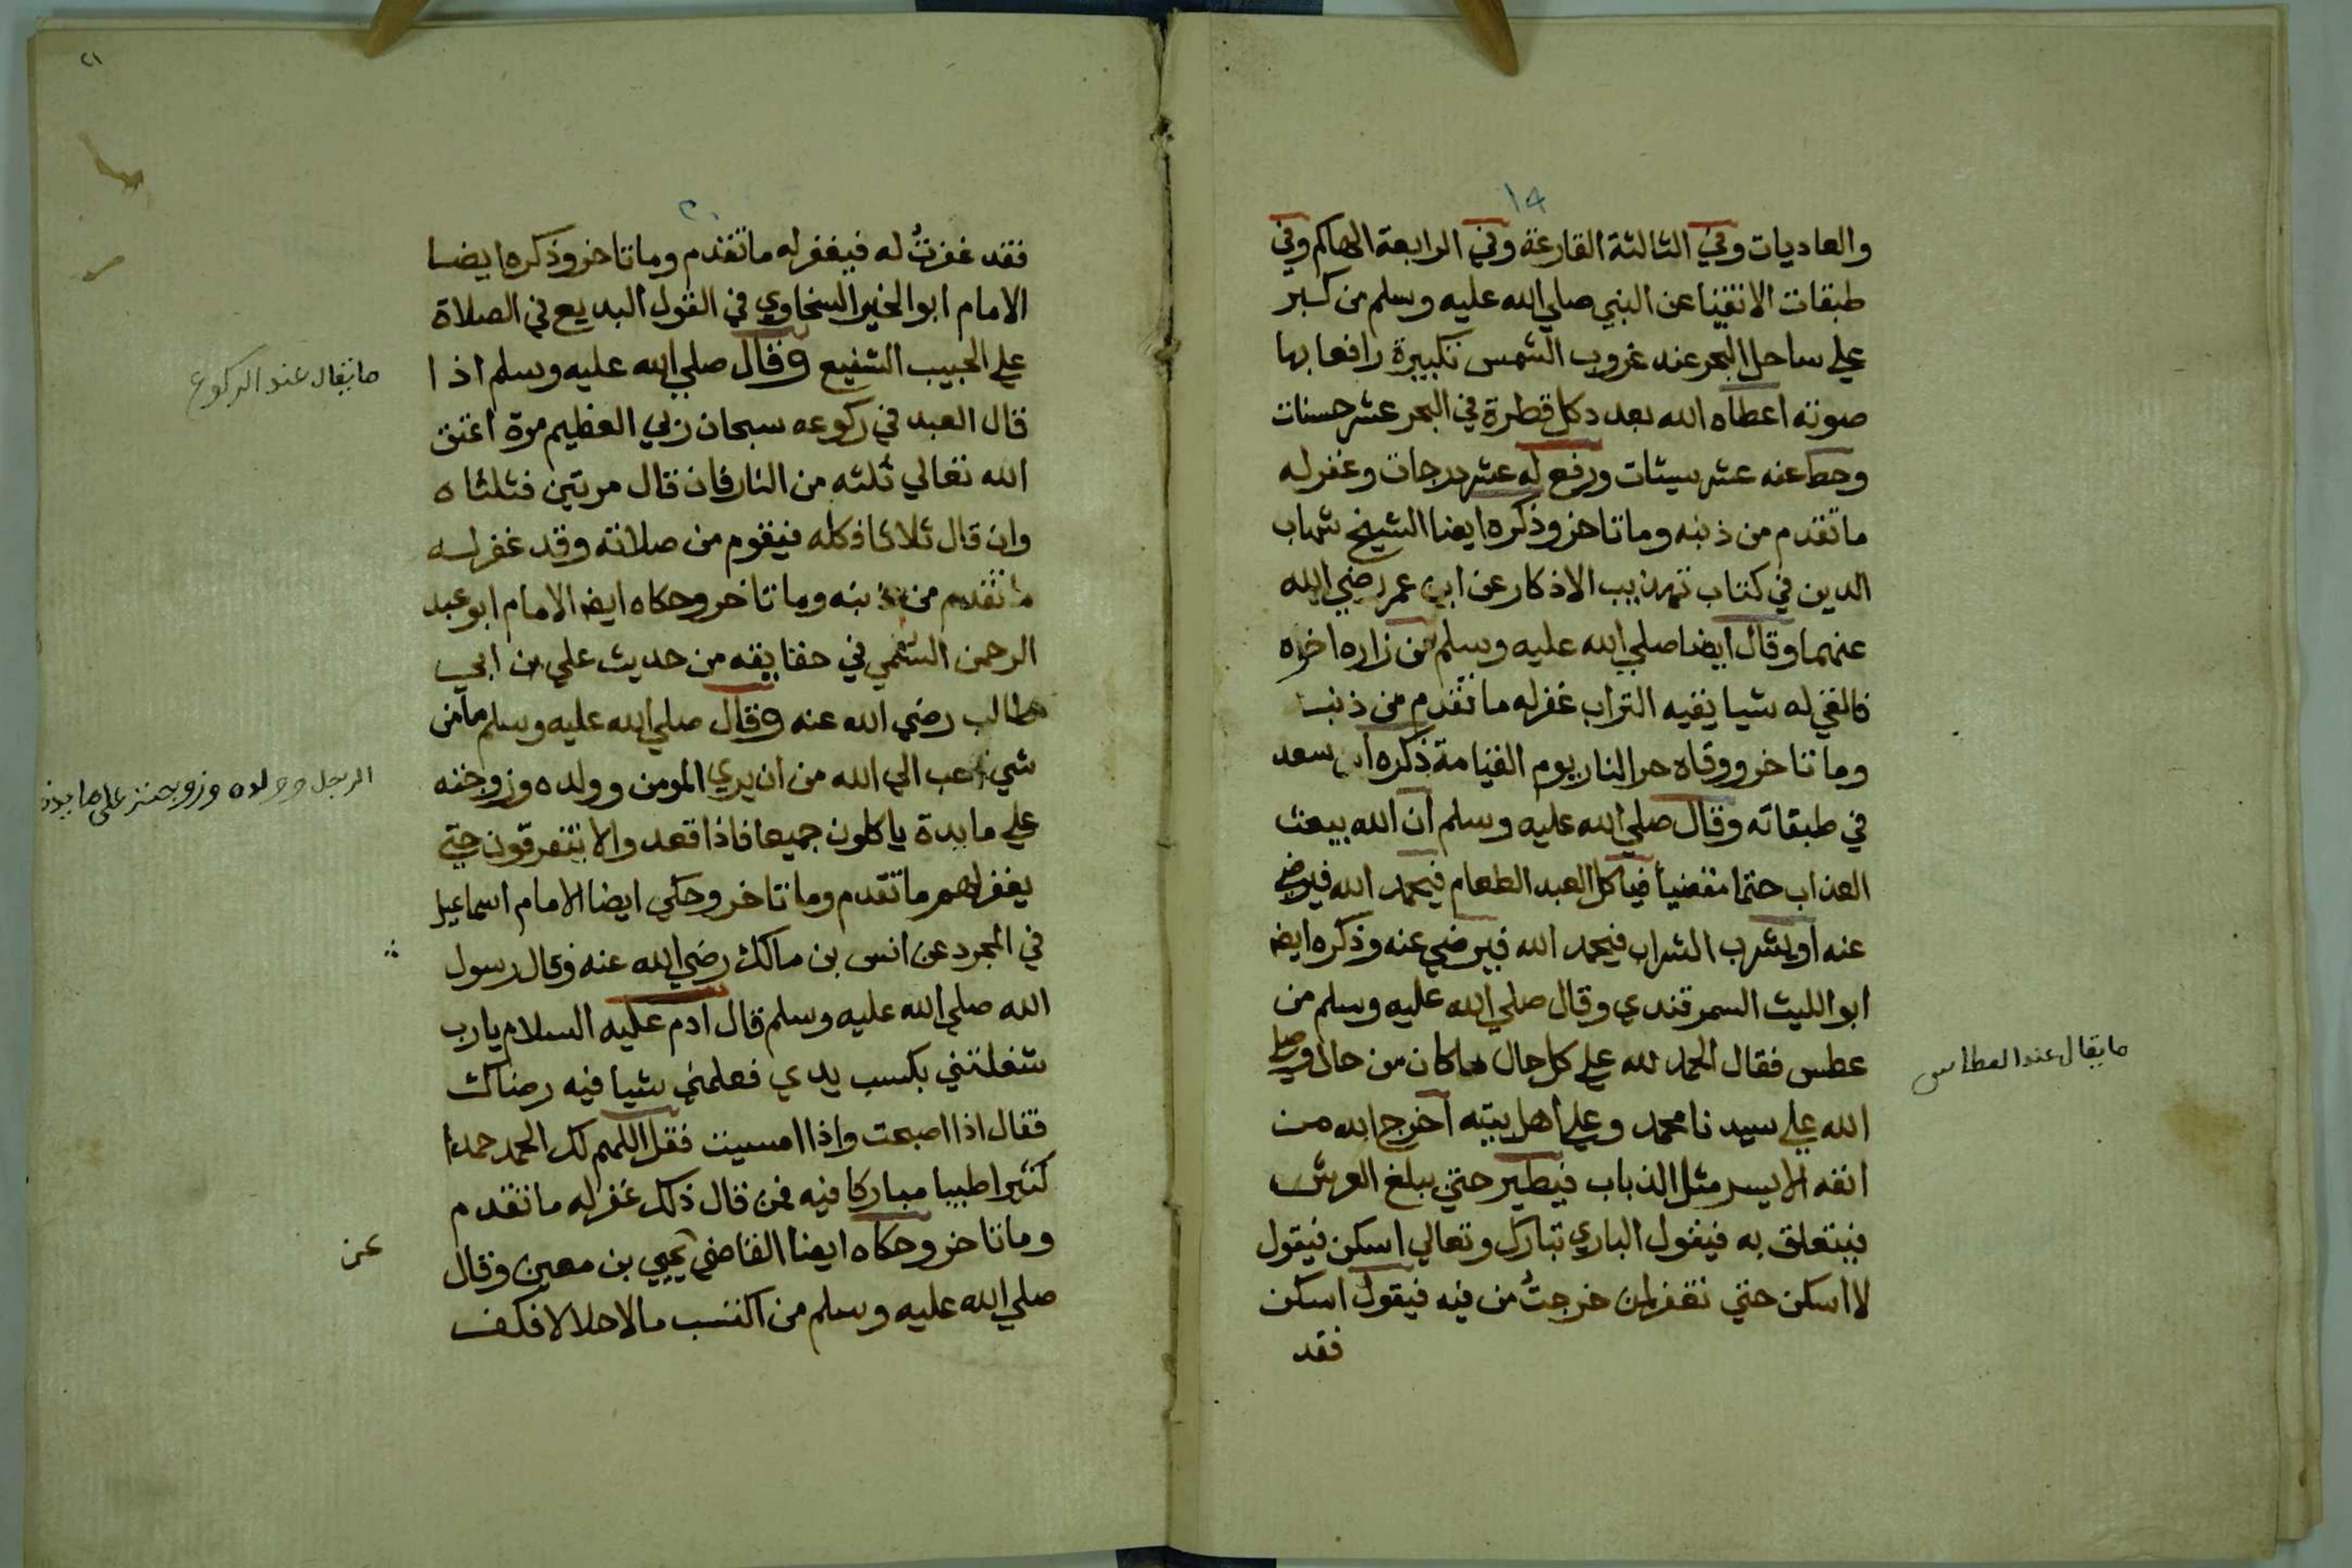 ١٩
والعاديات وفي الثالثة القارعة وفي الرابعة الهاكم وفي
طبقات الاتقيا عن النبي صلي الله عليه وسلم من كبر
علي ساحل البحر عند غروب الشمس تكبيرة رافعا بها
صوته اعطاه الله بعدد كل قطرة في البحر عشر حسنات
وحط عنه عشر سيئات ورفع له عشر درجات وغفر له
ما تقدم من ذنبه وما تاخر وذكره ايضا الشيخ شهاب
الدين في كتاب تهذيب الاذكار عن ابن عمر رضي الله
عنهما وقال ايضا صلي الله عليه وسلم من زاره اخوه
فالقي له شيا يقيه التراب غفر له ما تقدم من ذنبه
وما تاخر ووقاه حر النار يوم القيامة ذكره ابن سعد
في طبقاته وقال صلي الله عليه وسلم ان الله يبعث
العذاب حتما مقضيا فياكل العبد الطعام فيحمد الله فيرضي
عنه او يشرب الشراب فيحمد الله فيرضي عنه وذكره ايضا
ابو الليث السمرقندي وقال صلي الله عليه وسلم من
عطس فقال الحمد لله علي كل حال ما كان من حال وصلي
الله علي سيدنا محمد وعلي اهل بيته اخرج الله من
انفه الايسر مثل الذباب فيطير حتي يبلغ العرش
فيتعلق به فيقول الباري تبارك وتعالي اسكن فيقول
لا اسكن حتي تغفر لمن خرجتُ من فيه فيقول اسكن
فقد
مايقال عند العطاس
٢١
٢٠
فقد غفرتُ له فيغفر له ما تقدم وما تاخر وذكره ايضا
الامام ابو الخير السخاوي في القول البديع في الصلاة
علي الحبيب الشفيع وقال صلي الله عليه وسلم اذا
قال العبد في ركوعه سبحان ربي العظيم مرة اعتق
الله تعالي ثلثه من النار فان قال مرتين فثلثاه
وان قال ثلاثا فكله فيقوم من صلاته وقد غفر له
ما تقدم من ذنبه وما تاخر وحكاه ايضا الامام ابو عبد
الرحمن السلمي في حقايقه من حديث علي بن ابي
طالب رضي الله عنه وقال صلي الله عليه وسلم ما من
شي احب الي الله من ان يري المومن وولده وزوجته
علي مايدة ياكلون جميعا فاذا قعدوا لا يتفرقون حتي
يغفر لهم ما تقدم وما تاخر وحكي ايضا الامام اسماعيل
في المجرد عن انس بن مالك رضي الله عنه وقال رسول
الله صلي الله عليه وسلم قال ادم عليه السلام يارب
شغلتني بكسب يدي فعلمني شيا فيه رضاك
فقال اذا اصبحت واذا امسيت فقل اللهم لك الحمد حمدا
كثيرا طيبا مباركا فيه فمن قال ذلك غفر له ما تقدم
وما تاخر وحكاه ايضا القاضي يحيي بن معين وقال
صلي الله عليه وسلم من اكتسب مالا حلالا فكف
مايقال عند الركوع
الرجل وولده وزوجته على مايدة
عن